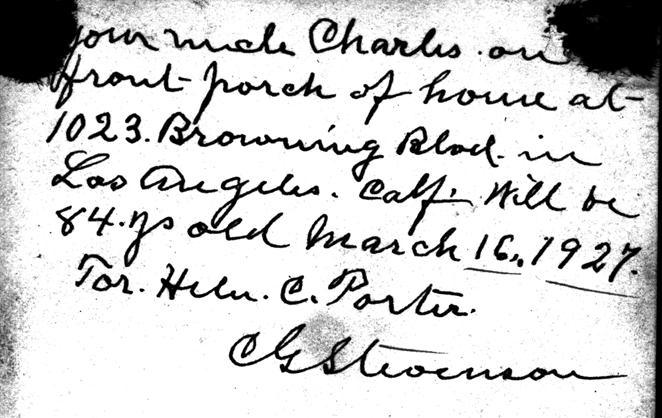 your uncle Charles on
front porch of home at
1023. Browning Blvd. in
Los Angeles. Calf. Will be
84.ys old March 16., 1927.
For. Helen. C. Porter.
CG Stevenson